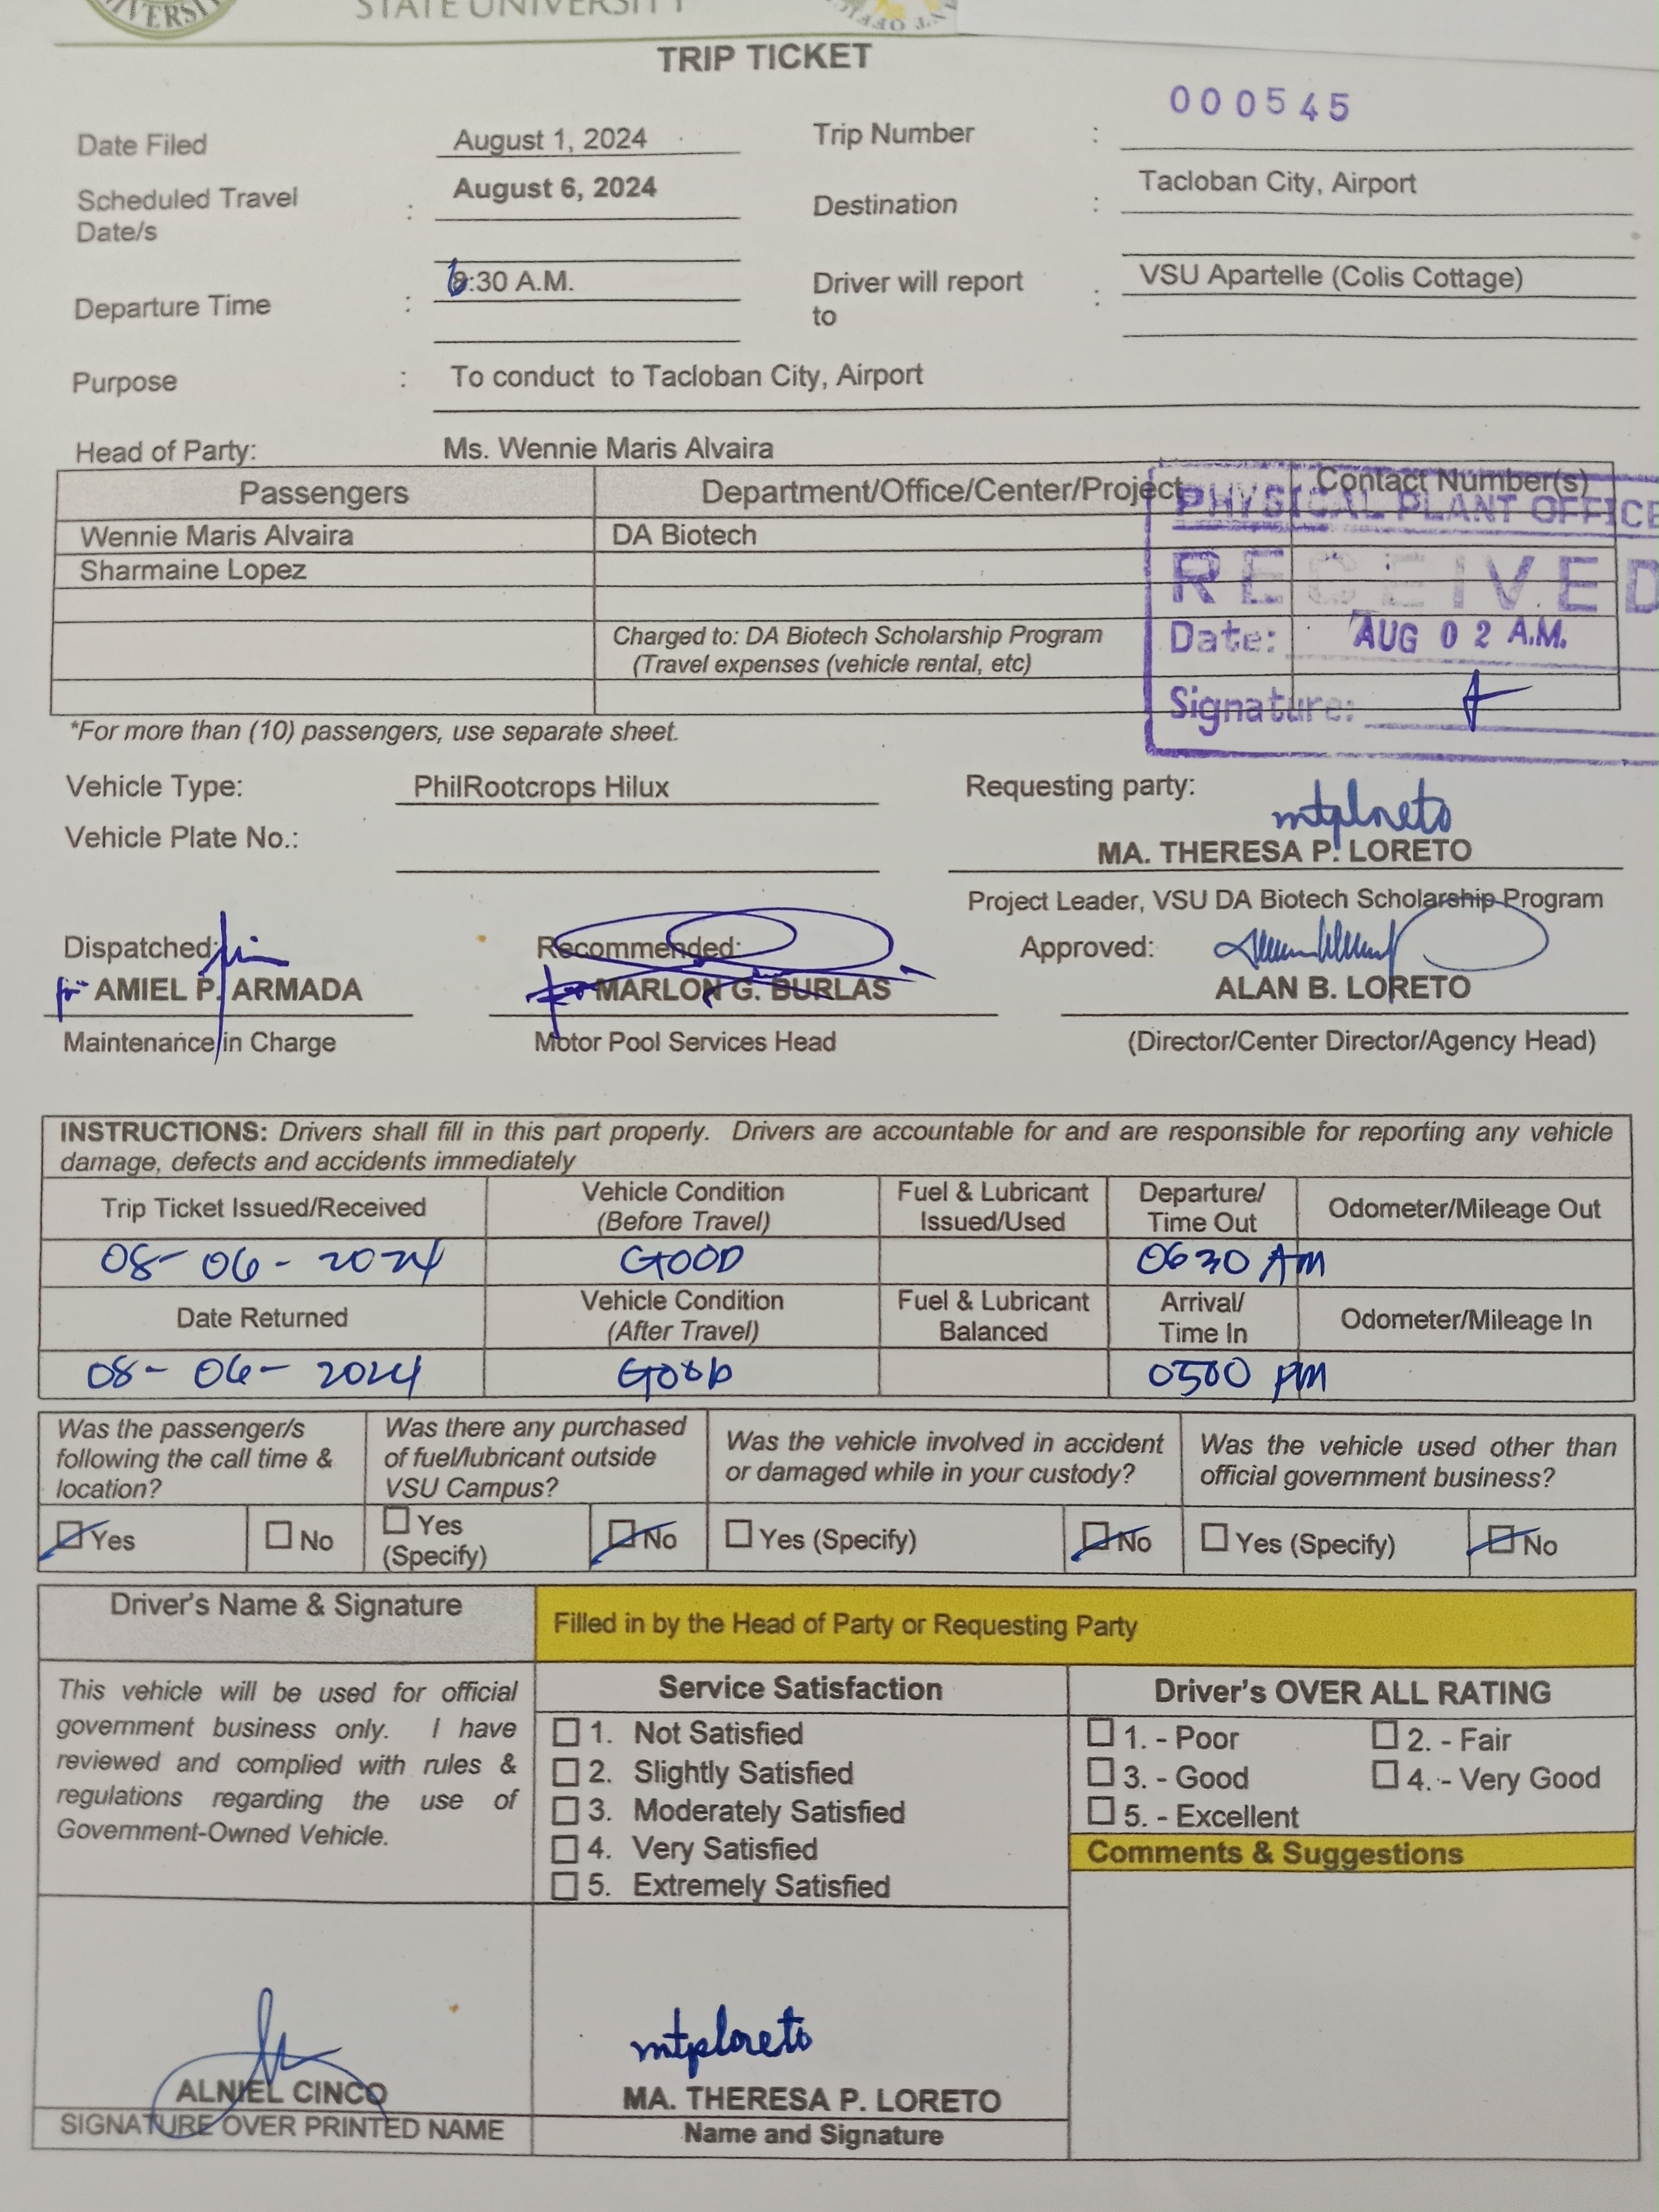 STATE UNIVERSITY
TRIP TICKET
000545
Date Filed August 1, 2024 Trip Number :
Scheduled Travel Date/s : August 6, 2024 Destination : Tacloban City, Airport
Departure Time : 6:30 A.M. Driver will report to : VSU Apartelle (Colis Cottage)
Purpose : To conduct to Tacloban City, Airport
Head of Party: Ms. Wennie Maris Alvaira
Passengers Department/Office/Center/Project Contact Number(s)
Wennie Maris Alvaira DA Biotech
Sharmaine Lopez
Charged to: DA Biotech Scholarship Program
(Travel expenses (vehicle rental, etc)
PHYSICAL PLANT OFFICE
RECEIVED
Date: AUG 02 A.M.
Signature:
*For more than (10) passengers, use separate sheet.
Vehicle Type: PhilRootcrops Hilux Requesting party:
mtploreto
Vehicle Plate No.: MA. THERESA P. LORETO
Project Leader, VSU DA Biotech Scholarship Program
Dispatched: Recommended: Approved:
for AMIEL P. ARMADA for MARLON G. BURLAS ALAN B. LORETO
Maintenance in Charge Motor Pool Services Head (Director/Center Director/Agency Head)
INSTRUCTIONS: Drivers shall fill in this part properly. Drivers are accountable for and are responsible for reporting any vehicle
damage, defects and accidents immediately
Trip Ticket Issued/Received Vehicle Condition (Before Travel) Fuel & Lubricant Issued/Used Departure/ Time Out Odometer/Mileage Out
08-06-2024 GOOD 0630 AM
Date Returned Vehicle Condition (After Travel) Fuel & Lubricant Balanced Arrival/ Time In Odometer/Mileage In
08-06-2024 GOOD 0500 PM
Was the passenger/s following the call time & location? Was there any purchased of fuel/lubricant outside VSU Campus? Was the vehicle involved in accident or damaged while in your custody? Was the vehicle used other than official government business?
Yes No Yes (Specify) No Yes (Specify) No Yes (Specify) No
Driver's Name & Signature Filled in by the Head of Party or Requesting Party
This vehicle will be used for official
government business only. I have
reviewed and complied with rules &
regulations regarding the use of
Government-Owned Vehicle.
Service Satisfaction
1. Not Satisfied
2. Slightly Satisfied
3. Moderately Satisfied
4. Very Satisfied
5. Extremely Satisfied
Driver's OVER ALL RATING
1. - Poor 2. - Fair
3. - Good 4. - Very Good
5. - Excellent
Comments & Suggestions
mtploreto
ALNIEL CINCO MA. THERESA P. LORETO
SIGNATURE OVER PRINTED NAME Name and Signature